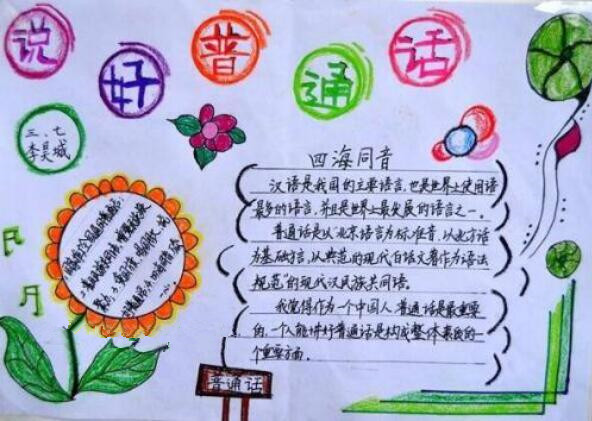 说好普通话
三、七
李昊城
四海同音
汉语是我国的主要语言，也是世界上使用语
最多的语言，并且是世界上最发展的语言之一。
普通话是以北京语言为标准音，以北方话
为基础方言，以典范的现代白话文著作为语法
规范"的现代汉民族共同语。
我觉得作为一个中国人，普通话是最重要
的，一个人能讲好普通话是构成整体素质的一
个重要方面。
普通话